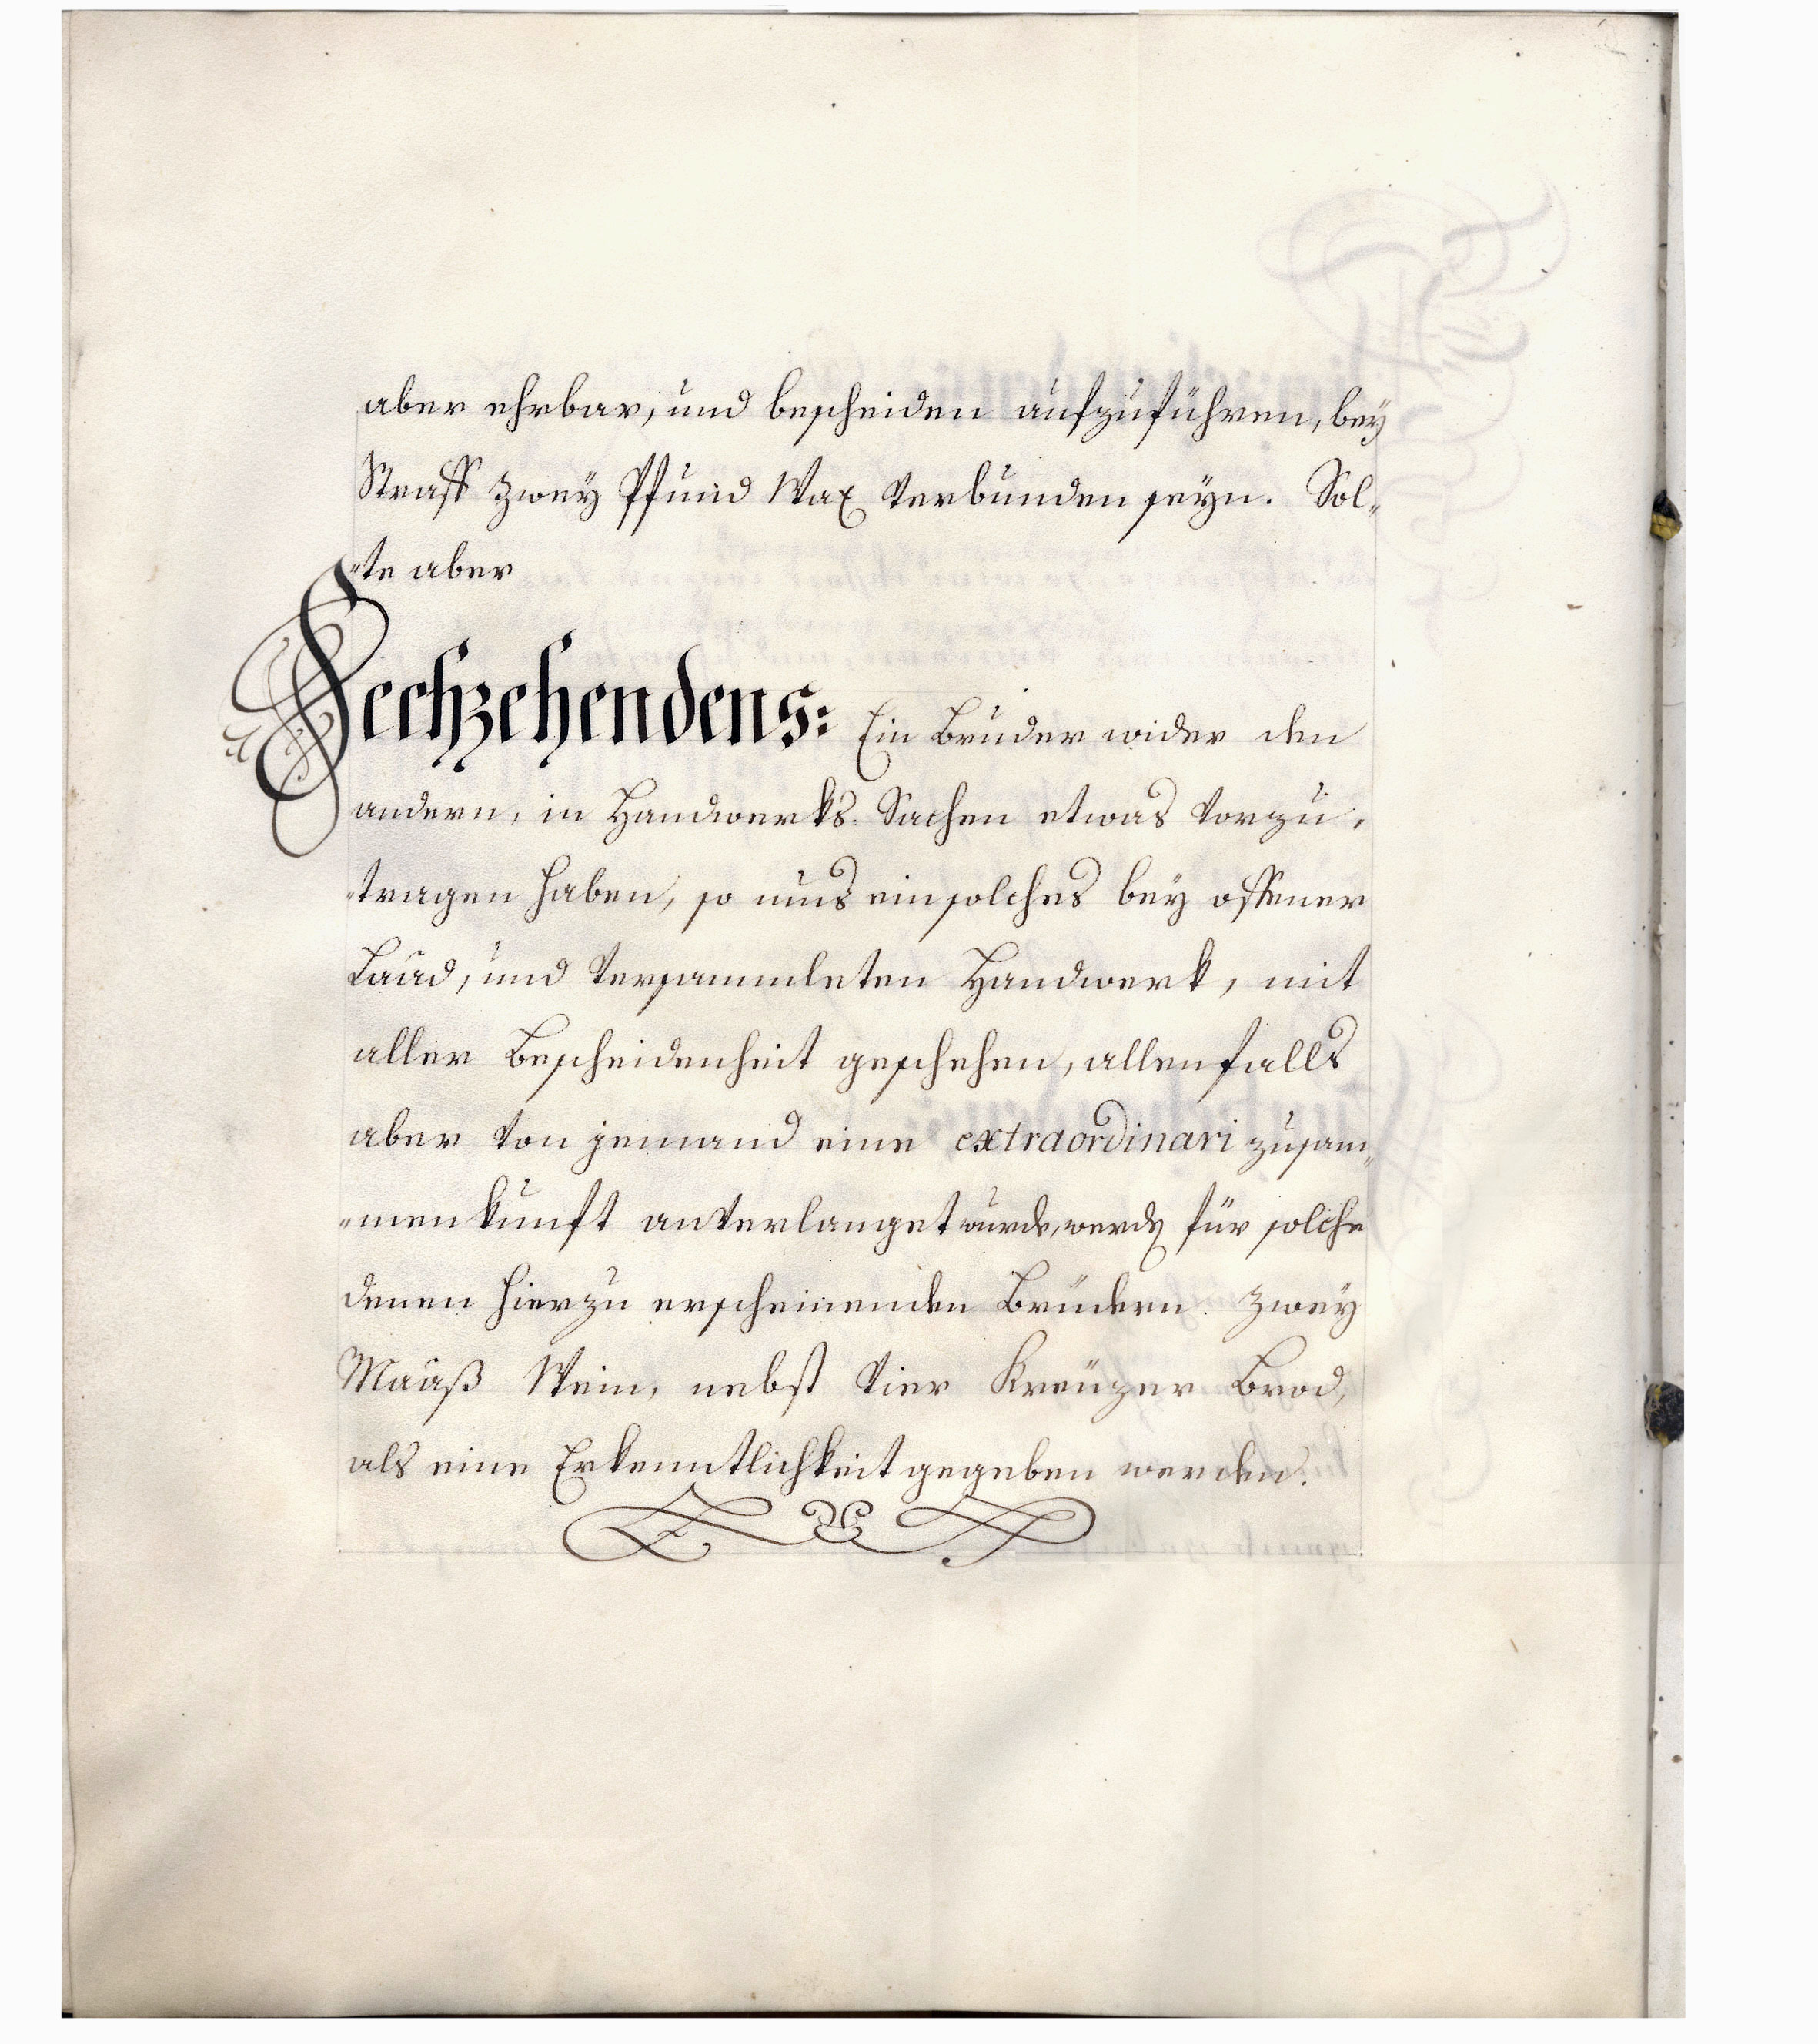 aber ehrbar, und bescheiden aufzuführen, bey
Straff zwey Pfund Wax verbunden seyn. Sol„
„te aber
Sechzehendens: Ein Bruder wider den
andern, in Handwerks-Sachen etwas vorzu„
„tragen haben, so mus ein solches bey offener
Laad, und versammleten Handwerk, mit
aller Bescheidenheit geschehen, allenfalls
aber von jemand eine extraordinari zusam„
„menkunft anverlanget wurde, werdẽ für solche
denen hierzu erscheinenden Brüdern zwey
Maaß Wein, nebst vier Kreüzer Brod,
als eine Erkenntlichkeit gegeben werden.